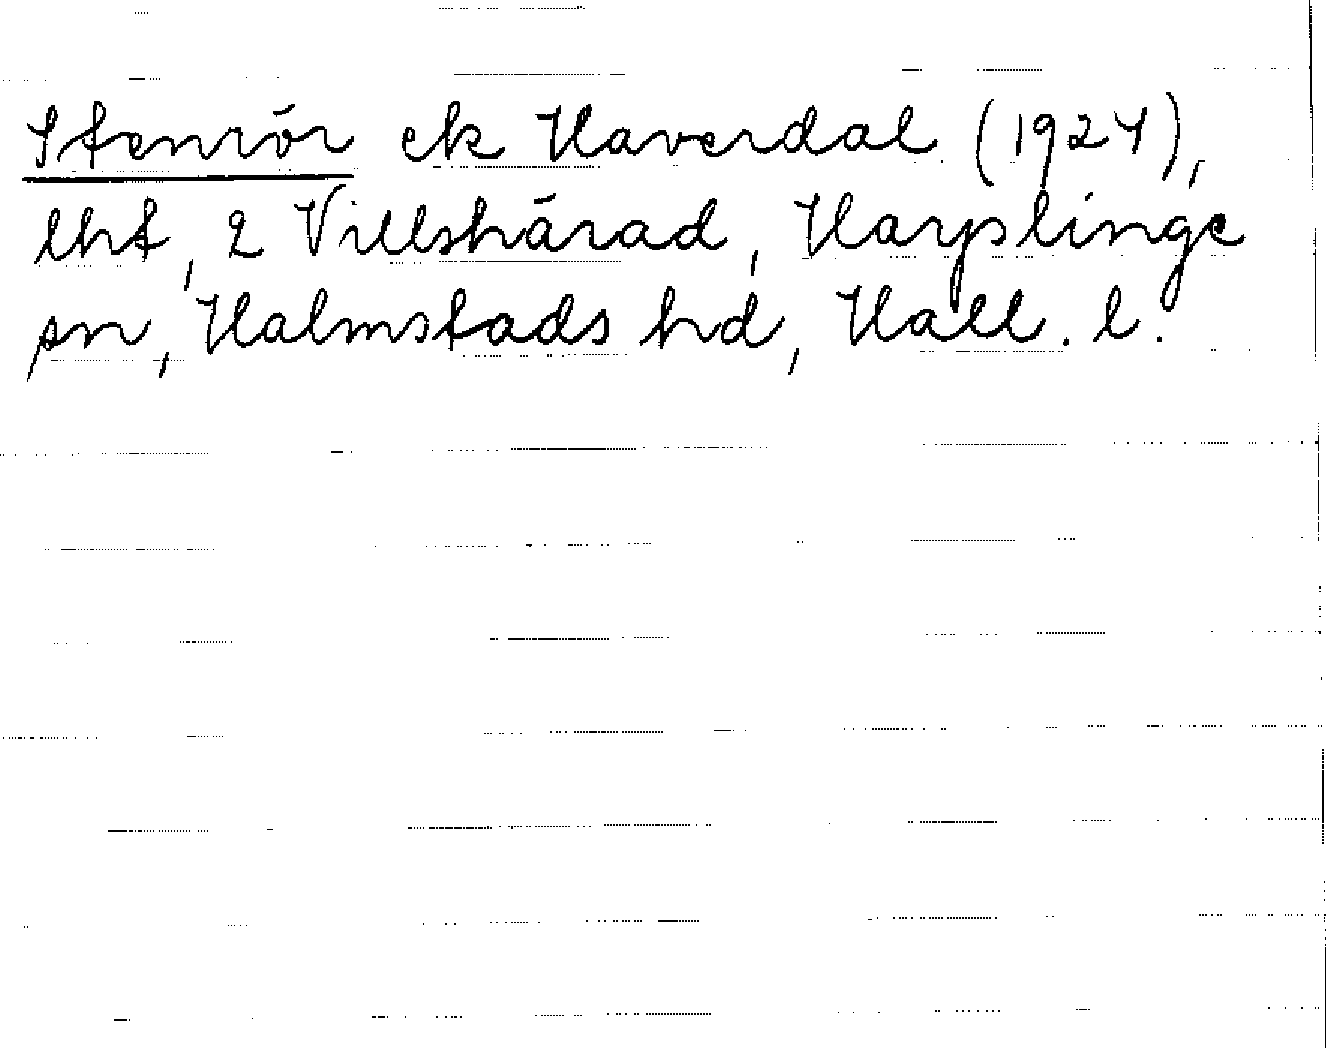 Stenrör ek Haverdal (1924),
lht, 2 Villshärad, Harplinge
sn, Halmstads hd, Hall. l.